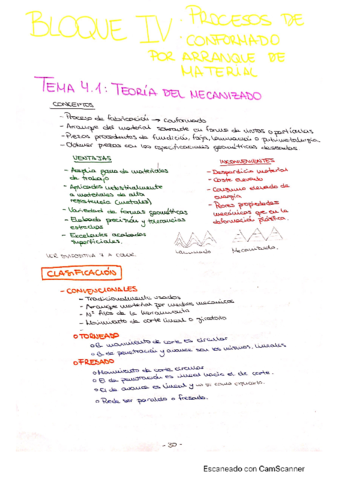 BLOQUE IV: PROCESOS DE
CONFORMADO
POR ARRANQUE DE
MATERIAL
TEMA 4.1: TEORÍA DEL MECANIZADO
CONCEPTOS
- Proceso de fabricación → conformado
- Arranque del material sobrante en forma de virutas o partículas
- Piezas procedentes de fundición, forja, laminación o pulvimetalurgia
- Obtener piezas con las especificaciones geométricas deseadas
VENTAJAS
- Amplia gama de materiales
de trabajo
- Aplicados industrialmente
a materiales de alta
resistencia (metales)
- Variedad de formas geométricas
- Elevada precisión y tolerancias
estrechas
- Excelentes acabados
superficiales.
INCONVENIENTES
- Desperdicio material
- Coste elevado
- Consumo elevado de
energía
- Peores propiedades
mecánicas que en la
deformación plástica.
Laminado
Mecanizado.
VER DIAPOSITIVA 7
CLASIFICACIÓN
- CONVENCIONALES
- Tradicionalmente usados
- Arranque material por medios mecánicos
- Nº filos de la herramienta
- Movimiento de corte lineal o giratorio
o TORNEADO
o El movimiento de corte es circular
o El de penetración y avance son los mismos, lineales
o FRESADO
o Movimiento de corte circular
o El de penetración es lineal hacia el de corte.
o El de avance es lineal y
o Puede ser paralelo o fresado.
- 30 -
Escaneado con CamScanner